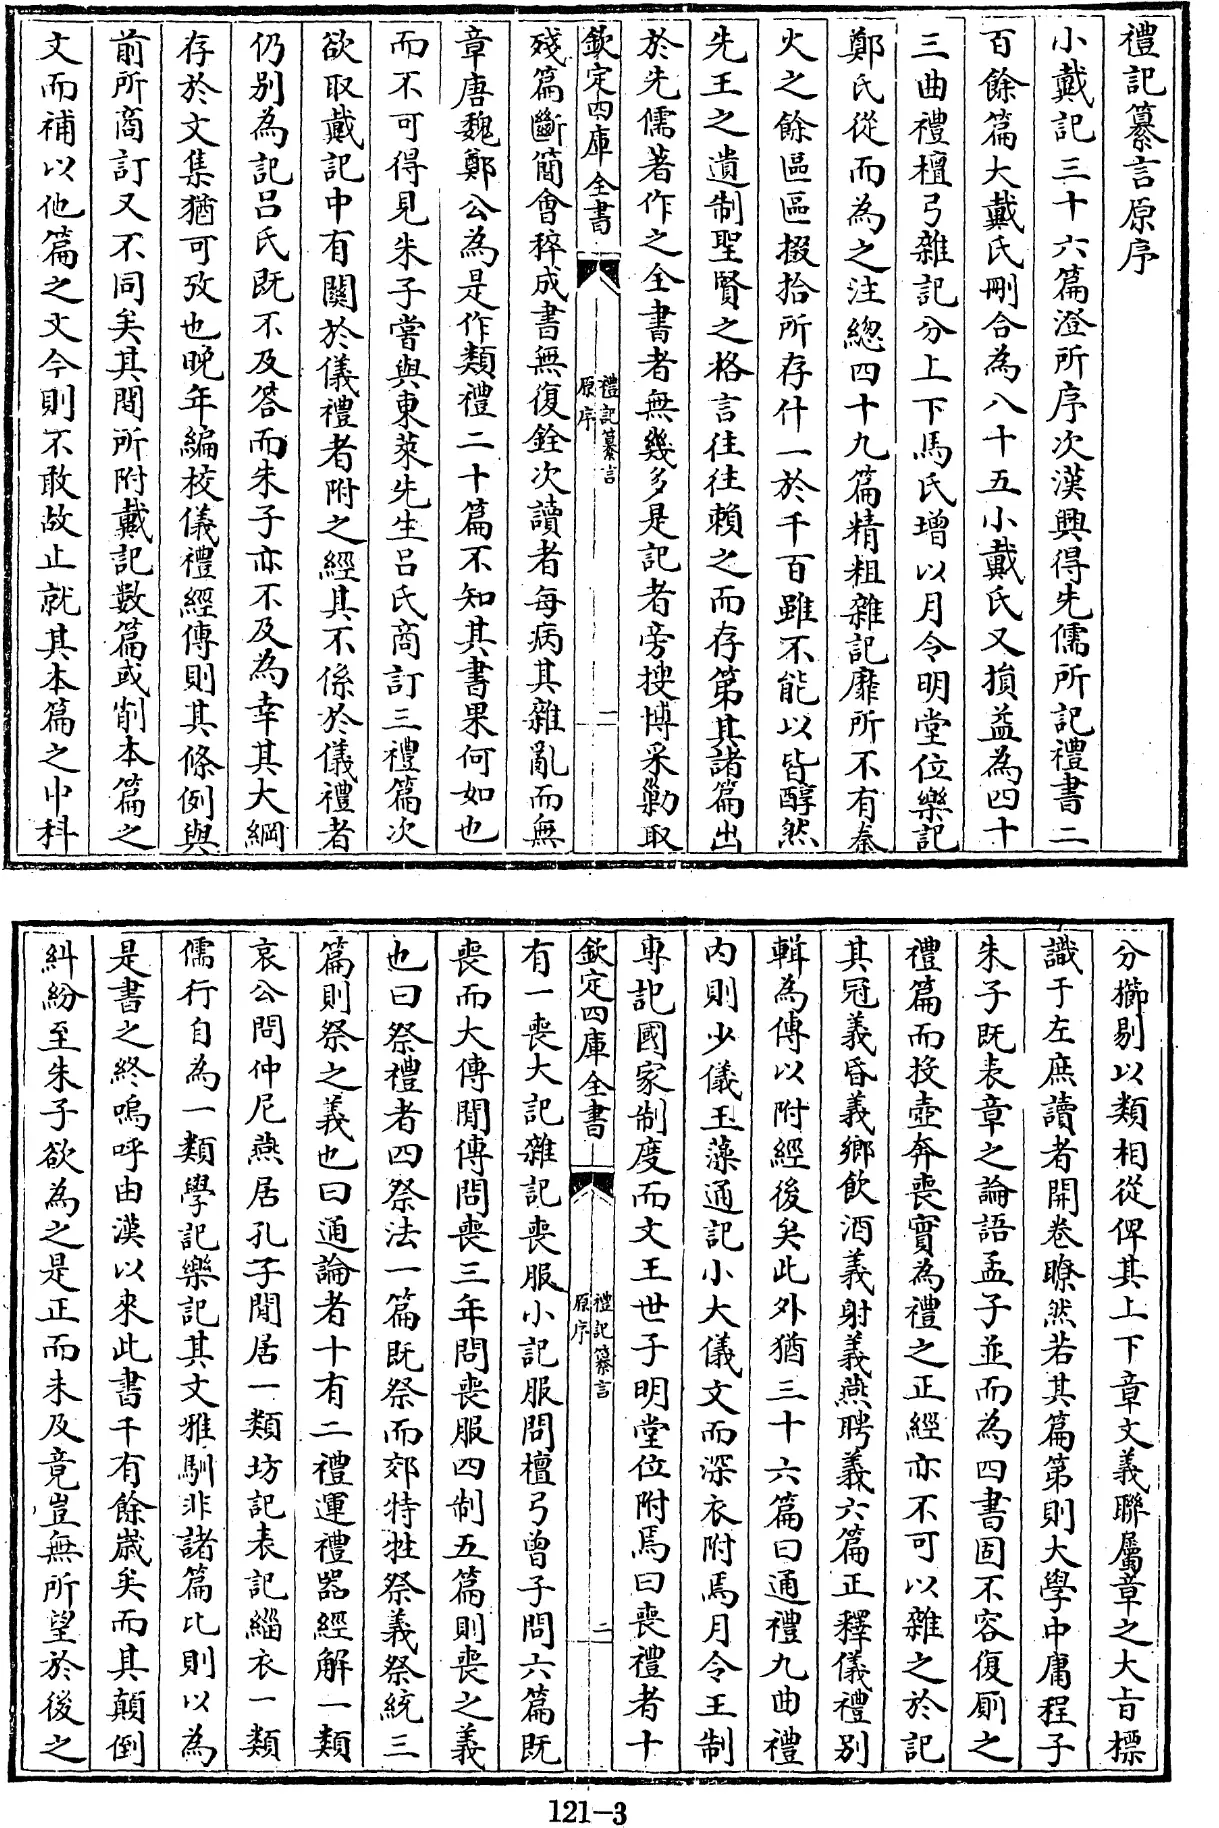 禮記纂言原序
小戴記三十六篇澄所序次漢興得先儒所記禮書二
百餘篇大戴氏刪合為八十五小戴氏又損益為四十
三曲禮檀弓雜記分上下馬氏增以月令明堂位樂記
鄭氏從而為之注總四十九篇精粗雜記靡所不有秦
火之餘區區掇拾所存什一於千百雖不能以皆醇然
先王之遺制聖賢之格言往往賴之而存第其諸篇出
於先儒著作之全書者無幾多是記者旁搜博采勦取
欽定四庫全書
禮記纂言
原序
一
殘篇斷簡會稡成書無復銓次讀者每病其雜亂而無
章唐魏鄭公為是作類禮二十篇不知其書果何如也
而不可得見朱子嘗與東萊先生呂氏商訂三禮篇次
欲取戴記中有關於儀禮者附之經其不係於儀禮者
仍別為記呂氏既不及答而朱子亦不及為幸其大綱
存於文集猶可攷也晚年編校儀禮經傳則其條例與
前所商訂又不同矣其間所附戴記數篇或削本篇之
文而補以他篇之文今則不敢故止就其本篇之中科
分櫛剔以類相從俾其上下章文義聯屬章之大旨標
識于左庶讀者開卷瞭然若其篇第則大學中庸程子
朱子既表章之論語孟子並而為四書固不容復厠之
禮篇而投壺奔喪實為禮之正經亦不可以雜之於記
其冠義昏義鄉飲酒義射義燕聘義六篇正釋儀禮別
輯為傳以附經後矣此外猶三十六篇曰通禮九曲禮
內則少儀玉藻通記小大儀文而深衣附焉月令王制
專記國家制度而文王世子明堂位附焉曰喪禮者十
欽定四庫全書
禮記纂言
原序
二
有一喪大記雜記喪服小記服問檀弓曾子問六篇既
喪而大傳間傳問喪三年問喪服四制五篇則喪之義
也曰祭禮者四祭法一篇既祭而郊特牲祭義祭統三
篇則祭之義也曰通論者十有二禮運禮器經解一類
哀公問仲尼燕居孔子閒居一類坊記表記緇衣一類
儒行自為一類學記樂記其文雅馴非諸篇比則以為
是書之終嗚呼由漢以來此書千有餘歲矣而其顛倒
糾紛至朱子欲為之是正而未及竟豈無所望於後之
121-3